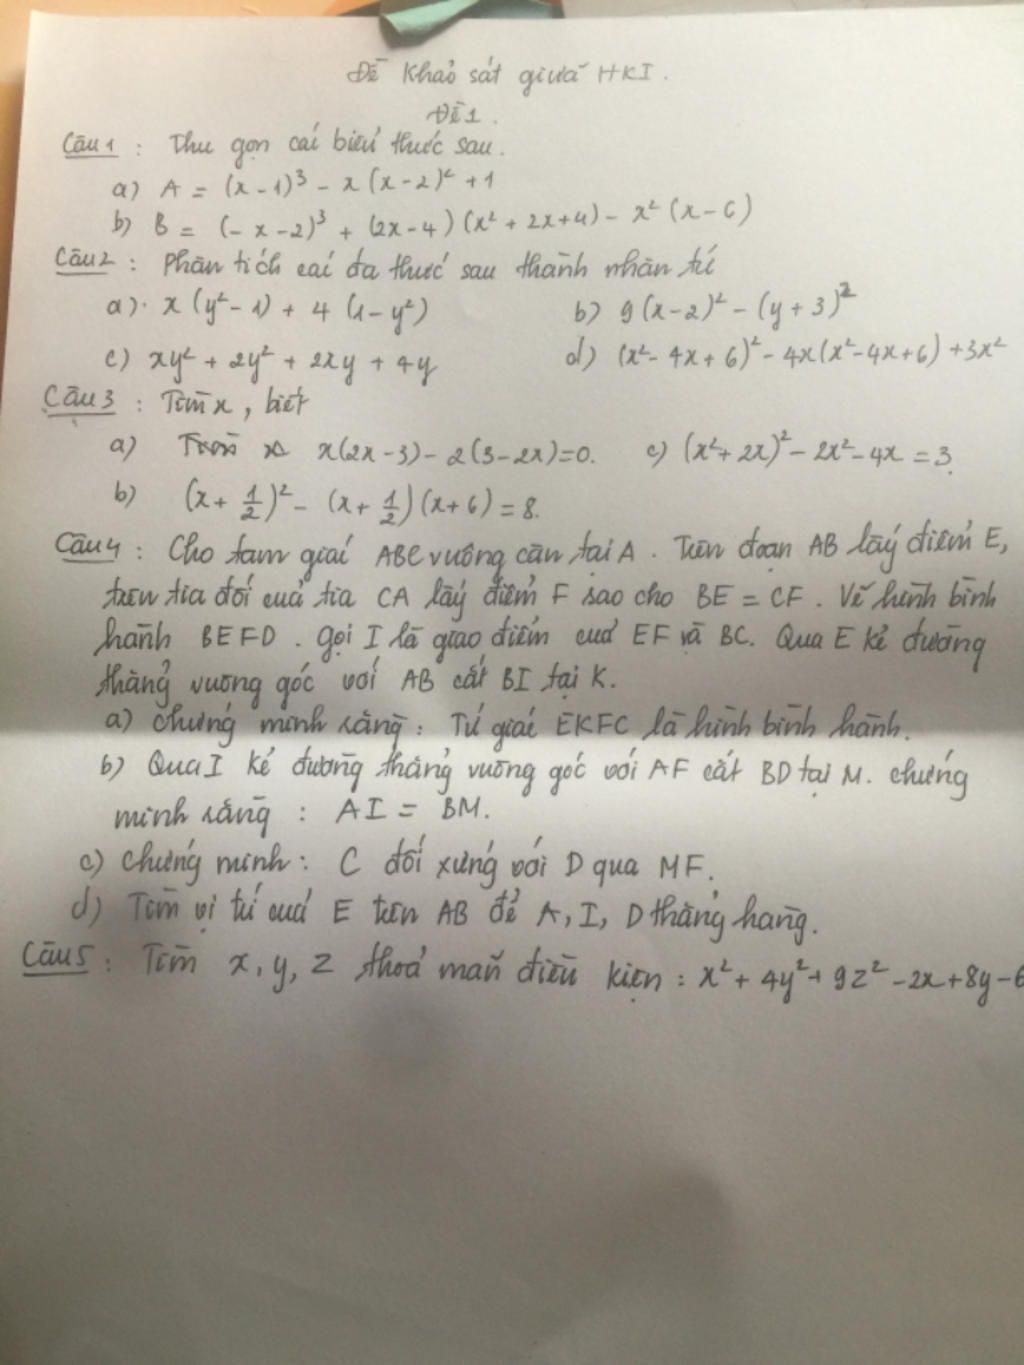 Đề khảo sát giữa HKI.
Đề 1.
Câu 1 : Thu gọn các biểu thức sau.
a) A = (x - 1)³ - x (x - 2)² + 1
b) B = (- x - 2)³ + (2x - 4) (x² + 2x + 4) - x² (x - 6)
Câu 2 : Phân tích các đa thức sau thành nhân tử
a). x (y² - 1) + 4 (1 - y²) b) 9 (x - 2)² - (y + 3)²
c) xy² + 2y² + 2xy + 4y d) (x² - 4x + 6)² - 4x (x² - 4x + 6) + 3x²
Câu 3 : Tìm x, biết
a) x(2x - 3) - 2 (3 - 2x) = 0. c) (x² + 2x)² - 2x² - 4x = 3.
b) (x + 1/2)² - (x + 1/2) (x + 6) = 8.
Câu 4 : Cho tam giác ABC vuông cân tại A. Trên đoạn AB lấy điểm E,
trên tia đối của tia CA lấy điểm F sao cho BE = CF. Vẽ hình bình
hành BEFD. Gọi I là giao điểm của EF và BC. Qua E kẻ đường
thẳng vuông góc với AB cắt BI tại K.
a) Chứng minh rằng : Tứ giác EKFC là hình bình hành.
b) Qua I kẻ đường thẳng vuông góc với AF cắt BD tại M. Chứng
minh rằng : AI = BM.
c) Chứng minh : C đối xứng với D qua MF.
d) Tìm vị trí của E trên AB để A, I, D thẳng hàng.
Câu 5 : Tìm x, y, z thoả mãn điều kiện : x² + 4y² + 9z² - 2x + 8y - 6